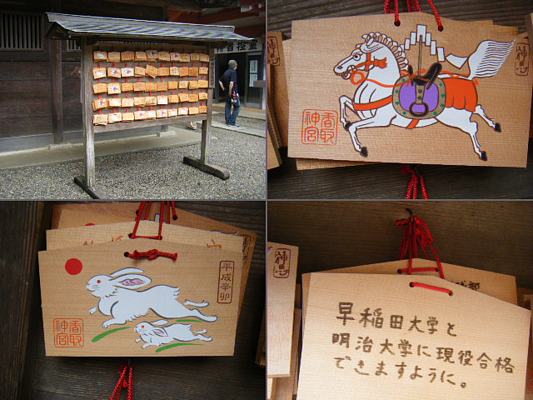 香取
神宮
平成辛卯
香取
神宮
早稲田大学と
明治大学に現役合格
できますように。